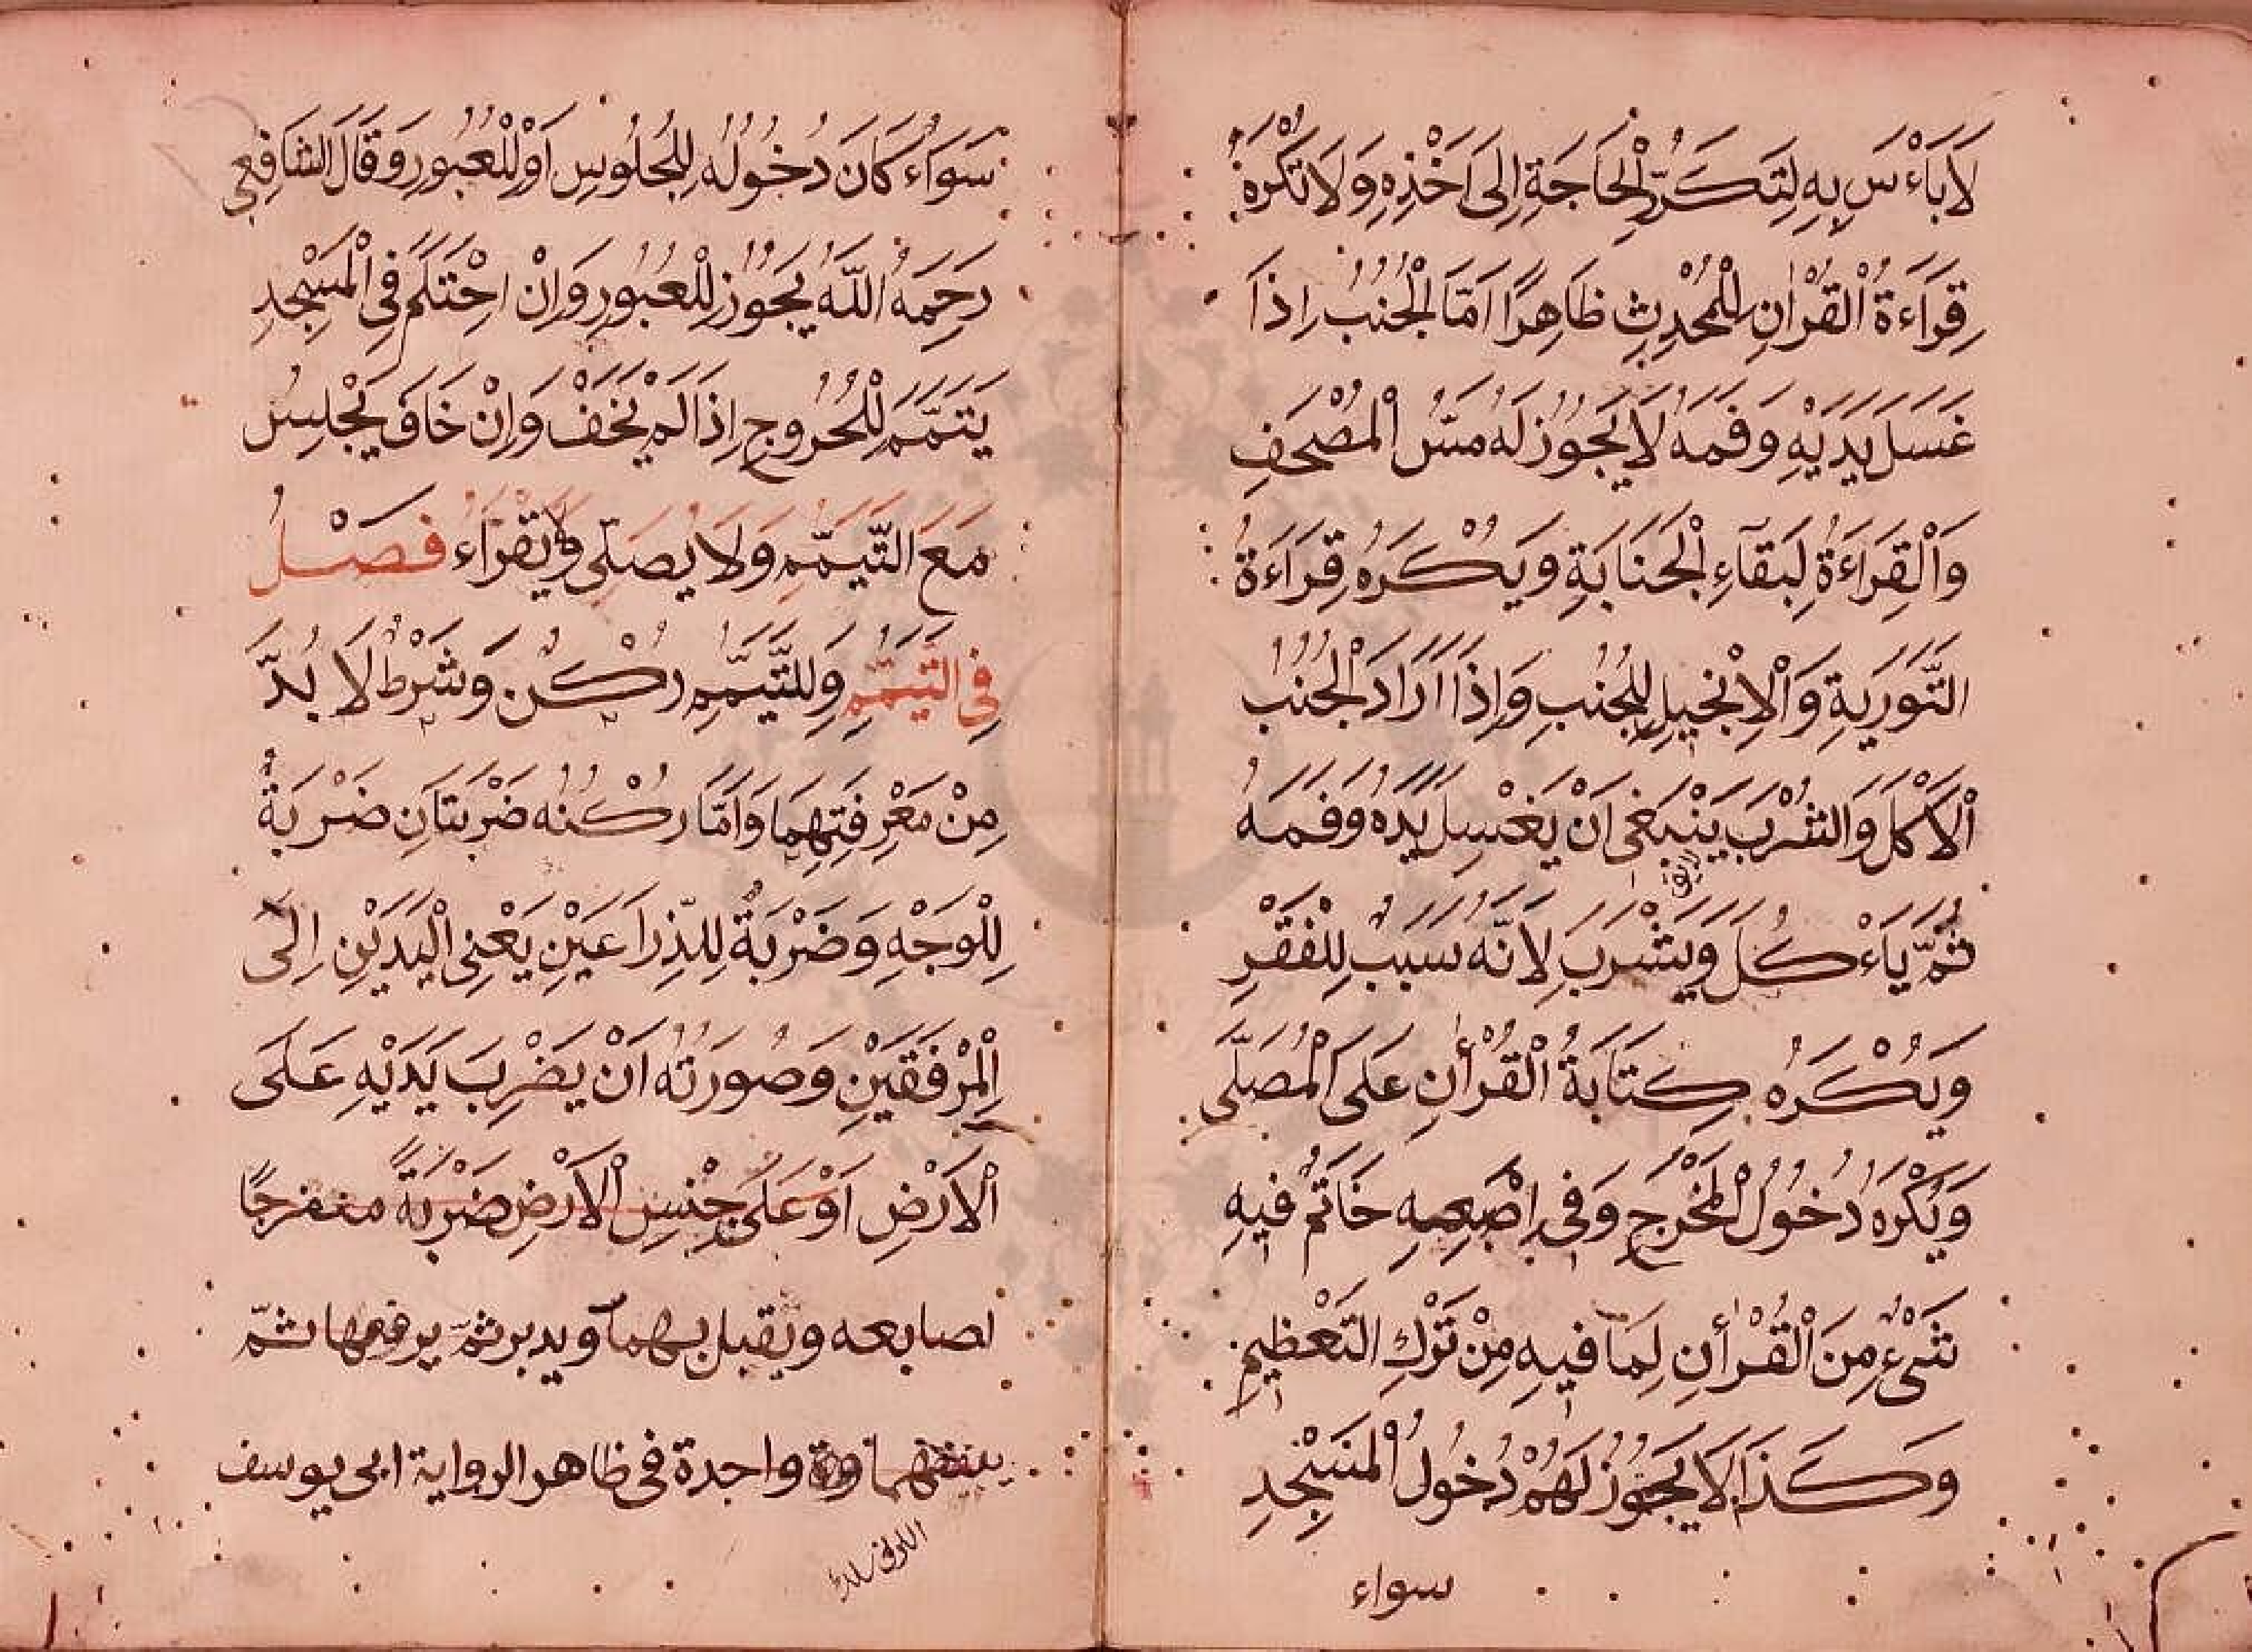 لَا بَاءْسَ بِهِ لِتَكَرُّرِ الْحَاجَةِ اِلَى اَخْذِهِ وَلَا تُكْرَهُ
قِرَاءَةُ الْقُرْاٰنِ لِلْمُحْدِثِ ظَاهِرًا اَمَّا الْجُنُبُ اِذَا
غَسَلَ يَدَيْهِ وَفَمَهُ لَا يَجُوزُ لَهُ مَسُّ الْمُصْحَفِ
وَالْقِرَاءَةُ لِبَقَآءِ الْجَنَابَةِ وَيُكْرَهُ قِرَاءَةُ
التَّوْرَيةِ وَالْاِنْجِيلِ لِلْجُنُبِ وَاِذَا اَرَادَ الْجُنُبُ
الْاَكْلَ وَالشُّرْبَ يَنْبَغِى اَنْ يَغْسِلَ يَدَهُ وَفَمَهُ
ثُمَّ يَاءْكُلَ وَيَشْرَبَ لِاَنَّهُ سَبَبٌ لِلْفَقْرِ
وَيُكْرَهُ كِتَابَةُ الْقُرْأٰنِ عَلَى الْمُصَلَّى
وَيُكْرَهُ دُخُولُ الْمَخْرَجِ وَفِى اِصْبَعِهِ خَاتَمٌ فِيهِ
شَىْءٌ مِنَ الْقُرْأٰنِ لِمَا فِيهِ مِنْ تَرْكِ التَّعْظِيمِ
وَكَذَا لَا يَجُوزُ لَهُمْ دُخُولُ الْمَسْجِدِ
سواء
سَوَاءٌ كَانَ دُخُولُهُ لِلْجُلُوسِ اَوْ لِلْعُبُورِ وَقَالَ الشَافِعِى
رَحِمَهُ اللّٰهُ يَجُوزُ لِلْعُبُورِ وَاِنْ احْتَلَمَ فِى الْمَسْجِدِ
يَتَمَّمَ لِلْخُرُوجِ اِذَا لَمْ يَخَفْ وَاِنْ خَافَ يَجْلِسُ
مَعَ التَّيَمُّمِ وَلَا يُصَلِّى وَلَا يَقْرَاءُ فَصْلُ
فِى التَّيَمُّمِ وَلِلتَّيَمُّمِ رُكْنٌ وَشَرْطٌ لَا بُدَّ
مِنْ مَعْرِفَتِهِمَا وَاَمَّا رُكْنُهُ ضَرْبَتَانِ ضَرْبَةٌ
لِلْوَجْهِ وَضَرْبَةٌ لِلذِّرَاعَيْنِ يَعْنِى الْيَدَيْنِ اِلَى
الْمِرْفَقَيْنِ وَصُورَتُهُ اَنْ يَضْرِبَ يَدَيْهِ عَلَى
الْاَرْضِ اَوْ عَلَى جِنْسِ الْاَرْضِ ضَرْبَةً منفرجًا
اصابعه ويقبل بهما ويدبر ثمّ يرفعهما ثمّ
ينفضهما واحدة فى ظاهر الرواية ابى يوسف